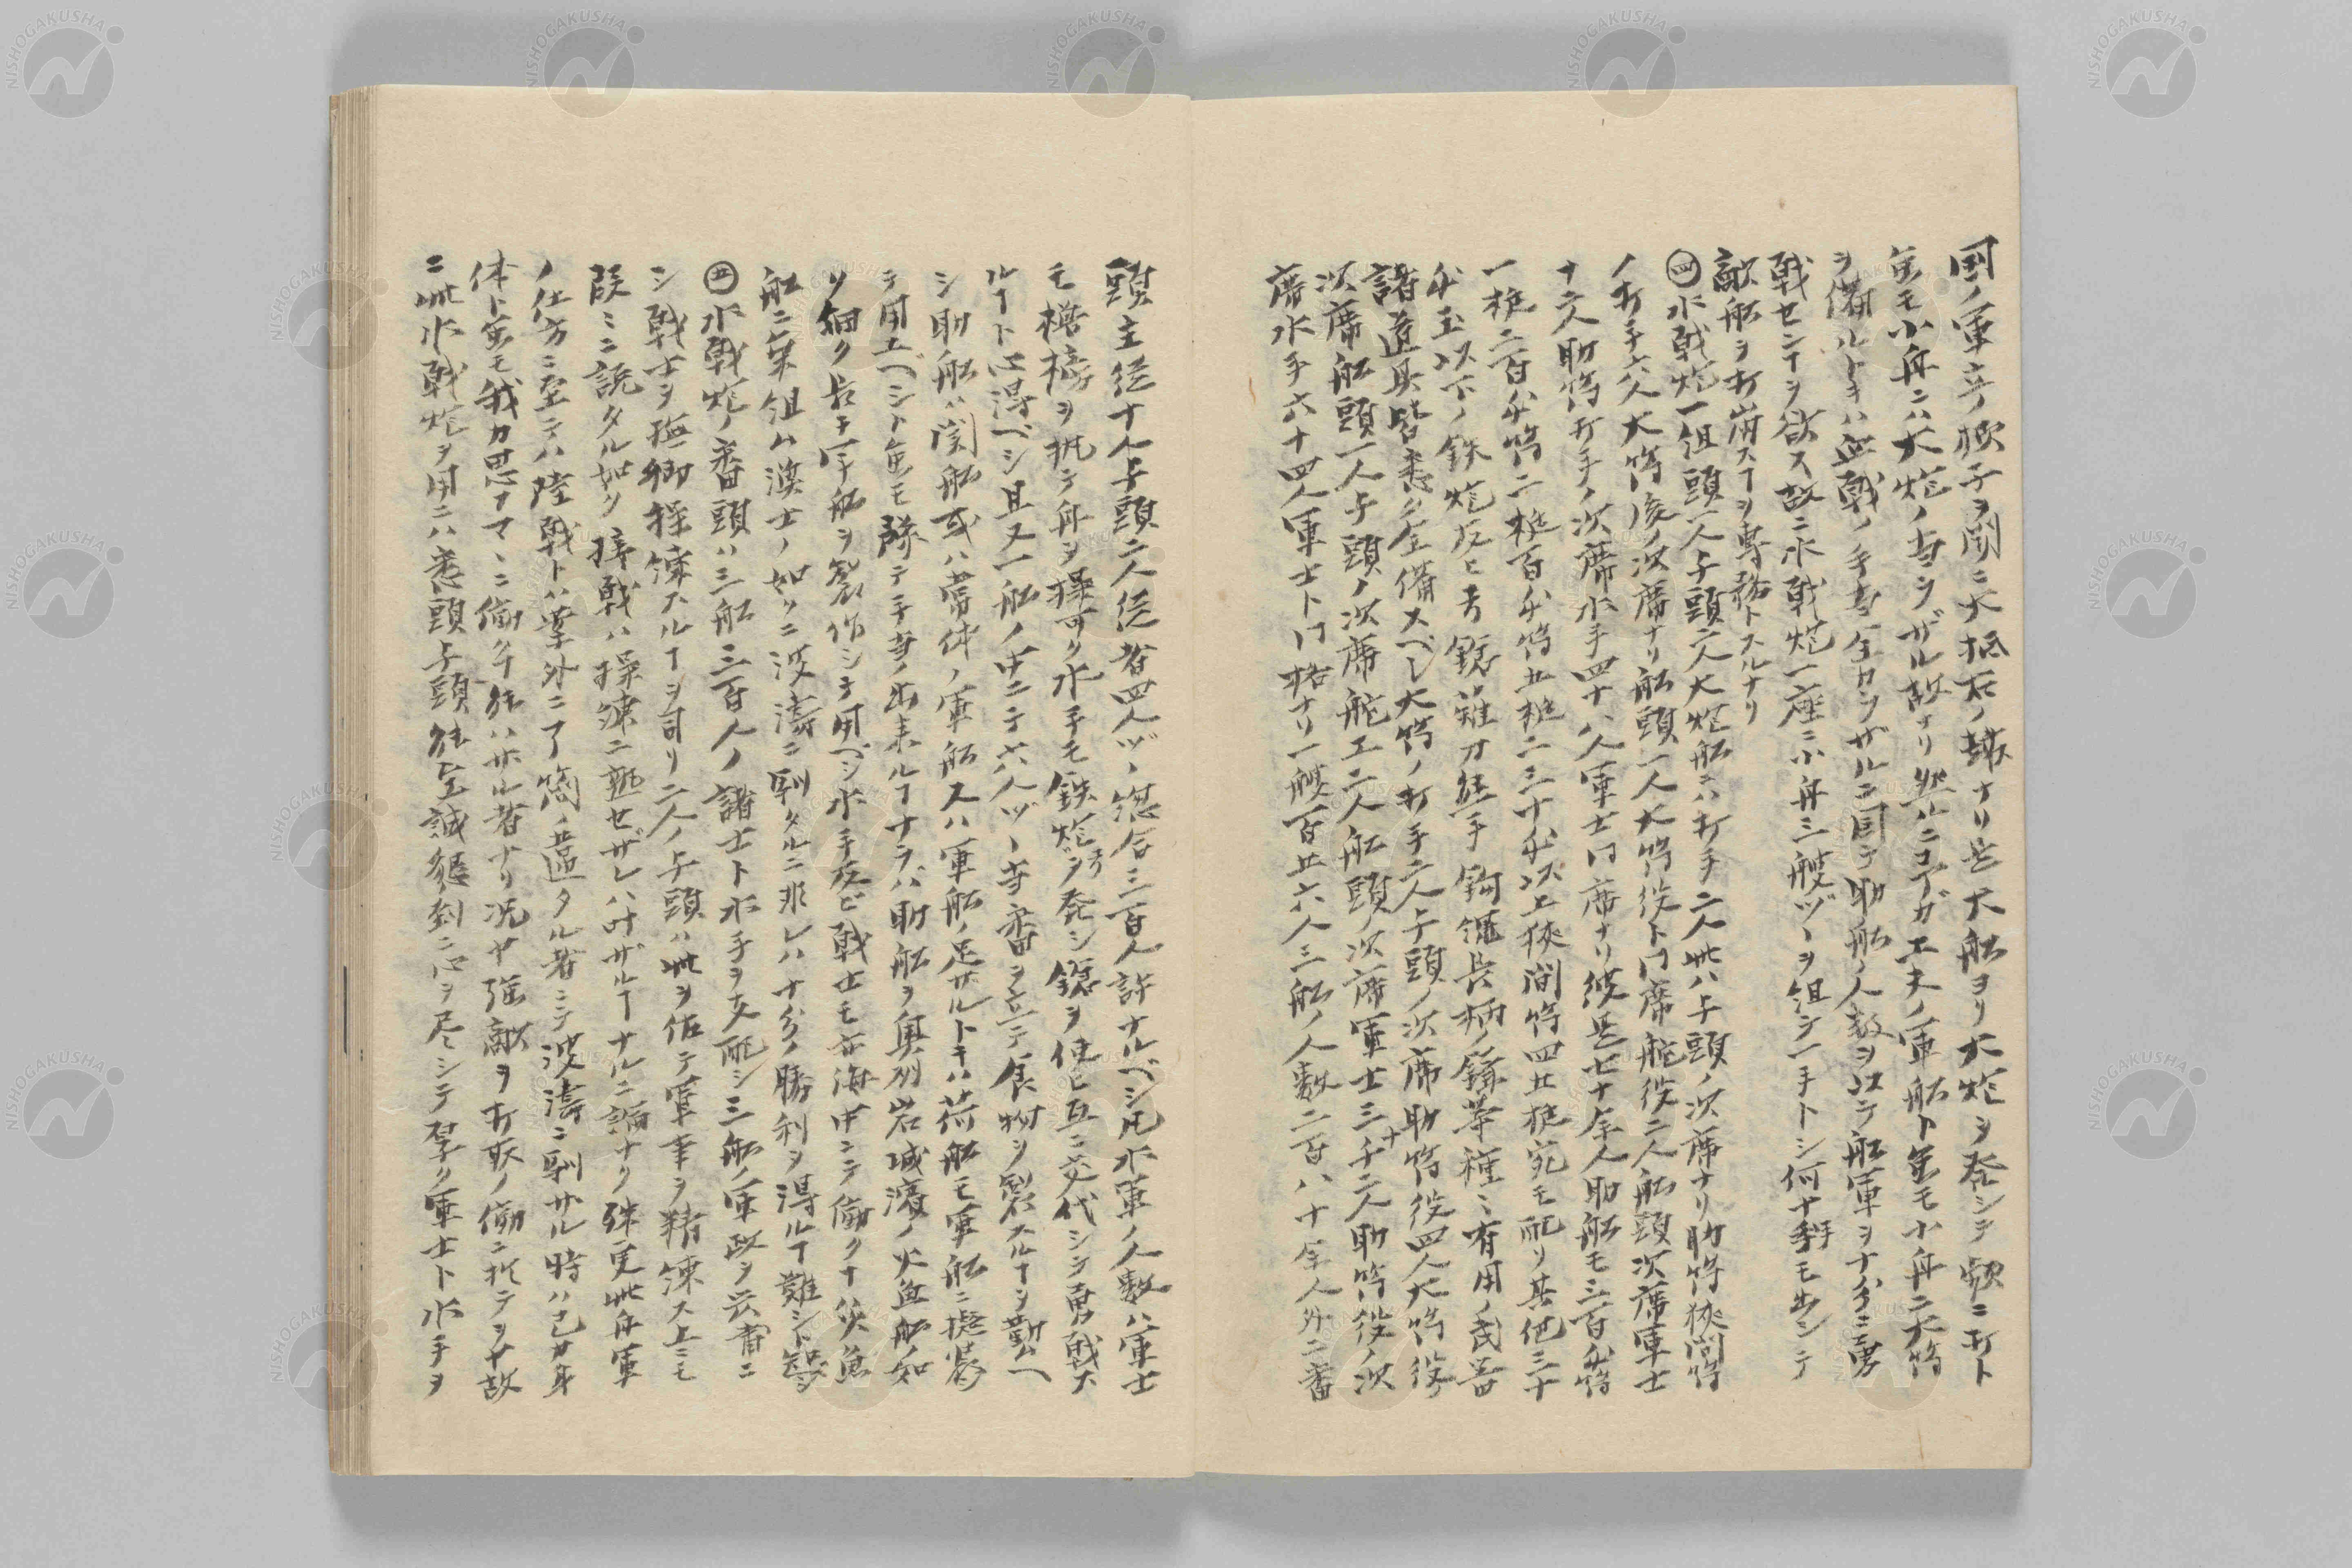 国ノ軍立ノ様子ヲ聞ニ大抵右ノ趣ナリ是大舩ヨリ大炮ヲ発シテ頻ニ打ト
雖モ小舟ニハ大炮ノ当ラザル故ナリ然ルニコナガエ夫ノ軍舩ト雖モ小舟ニ大筒
ヲ備ルトキハ血戦ノ手当全カラザルニ因テ助舩ノ人数ヲ以テ舩軍ヲ十分ニ勇
戦センヿヲ欲ス故ニ水戦炮一座ニ小舟三艘ヅヽヲ組テ一手トシ何十手モ出シテ
敵舩ヲ打崩スヿヲ専務トスルナリ
㊃水戦炮一組頭一人与頭二人大炮舩ニハ打手二人此ハ与頭ノ次席ナリ助筒狭間筒
ノ打手六人大筒役ノ次席ナリ舩頭一人大筒役ト同席舵役二人舩頭次席軍士
十二人助筒打手ノ次席水手四十八人軍士同席ナリ総是七十余人助舩モ三百目筒
一梃二百目筒二梃百目筒五梃二三十目以上狭間筒四五梃宛モ配リ其他三十
目玉以下ノ鉄炮及ヒ弓鎗薙刀熊手鉤縄長柄ノ鎌等種々有用ノ武器
諸道具皆悉ク全備スベシ大筒ノ打手二人与頭ノ次席助筒役四人大筒役ノ
次席舩頭一人与頭ノ次席舵工二人舩頭ノ次席軍士三十二人助筒役ノ次
席水手六十四人軍士ト同格ナリ一艘百五六人三舩ノ人数二百八十余人外ニ番
頭主従十人与頭二人従者四人ヅヽ総合三百人許ナルベシ凡水軍ノ人数ハ軍士
モ櫓櫂ヲ執テ舟ヲ操可ク水手モ鉄炮弓ヲ発シ鎗ヲ使ヒ互ニ交代シテ勇戦ス
ルヿト心得ベシ且又一舩ノ中ニテ六人ヅヽ当番ヲ立テ食物ヲ製スルヿヲ勤ムヘ
シ助舩ハ関舩或ハ常体ノ軍舩又ハ軍舩ノ足ザルトキハ荷舩モ軍舩ニ擬農
ヲ用ユベシト雖モ隊テ手当ノ出来ルヿナラバ助舩ヲ奥州岩城濱ノ火魚舩ノ如
ク細ク長キ厚舩ヲ製作シテ用ベシ水手及ビ戦士モ亦海中ニテ働クヿ火魚
舩ニ乗組ム漢士ノ如クニ波濤ニ馴タルニ非レハ十分ノ勝利ヲ得ルヿ難シト知ベシ
㊄水戦炮ノ番頭ハ三舩三百人ノ諸士ト水手ヲ支配シ三舩ノ軍政ヲ厳粛ニ
シ戦士ヲ撫御操練スルヿヲ司リ二人ノ与頭ハ此ヲ佐テ軍事ヲ精練ス上ニモ
段々ニ説タル如ク接戦ハ操練ニ熟セザレハ叶ザルヿナルニ論ナク殊更此舟軍
ノ仕方ニ至テハ陸戦トハ掌外ニ了簡ノ違タル者ニテ波濤ニ馴サル時ハ己カ身
体ト雖モ我カ思フマヽニ働クヿ能ハザル者ナリ況ヤ強敵ヲ打取ノ働ニ於テヲヤ故
ニ此水戦炮ヲ用ニハ悉頭与頭能至誠懇到ニ心ヲ尽シテ厚ク軍士ト水手ヲ